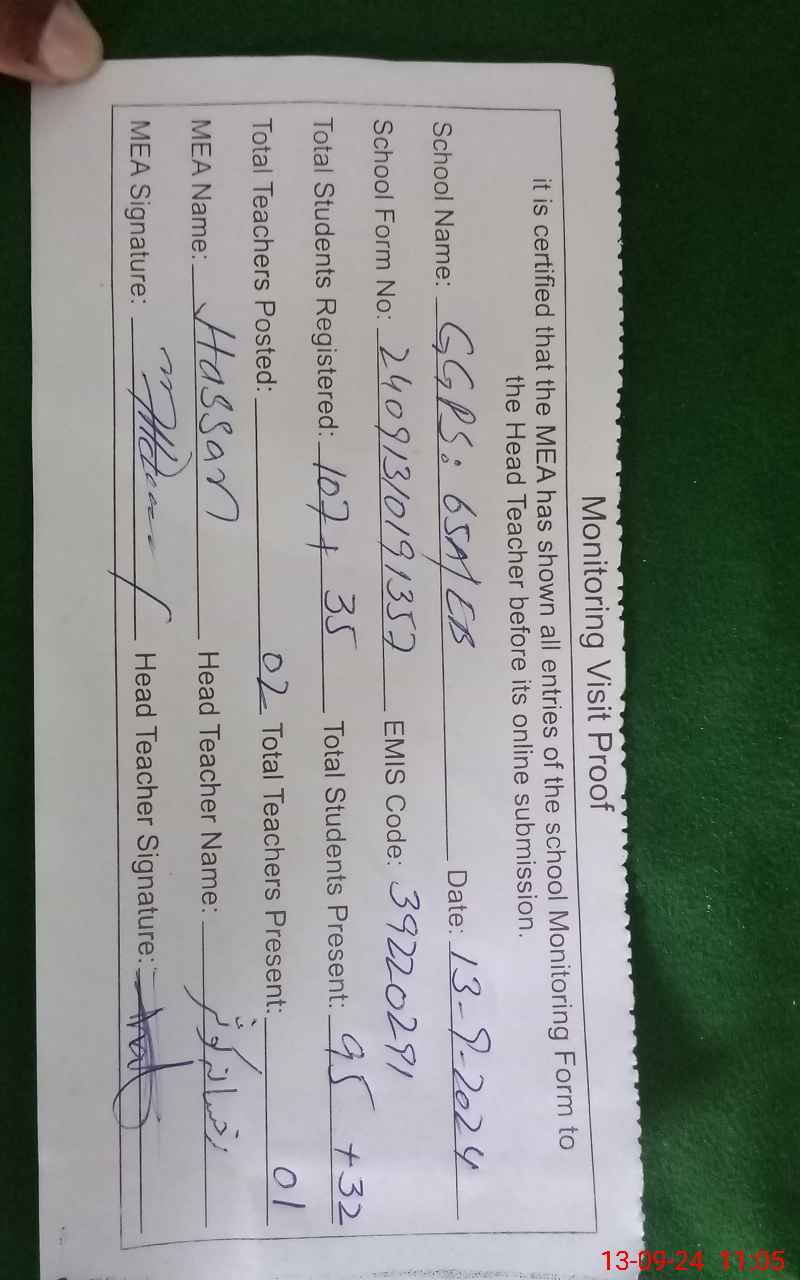 Monitoring Visit Proof
it is certified that the MEA has shown all entries of the school Monitoring Form to
the Head Teacher before its online submission.
School Name: GGPS: 65A/EB Date: 13-9-2024
School Form No: 24091310191357 EMIS Code: 39220291
Total Students Registered: 107 + 35 Total Students Present: 95 + 32
Total Teachers Posted: 02 Total Teachers Present: 01
MEA Name: Hassan Head Teacher Name: رخسانہ کوثر
MEA Signature: Head Teacher Signature:
13-09-24 11:05